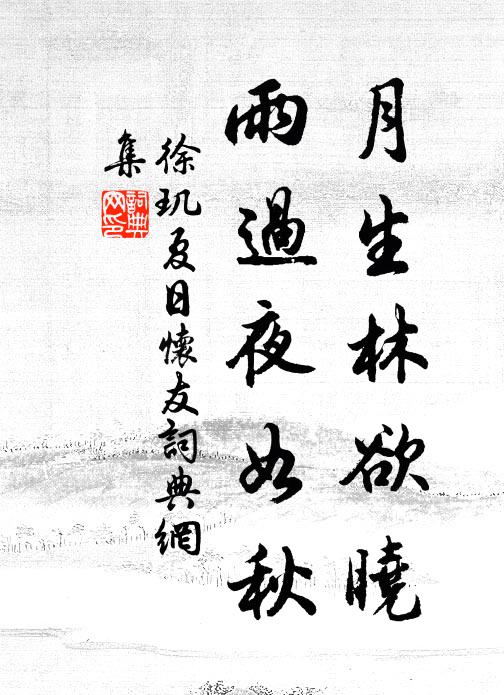 月生林欲曉
雨過夜如秋
徐玑夏日懷友詞典網
集
詞典
网印